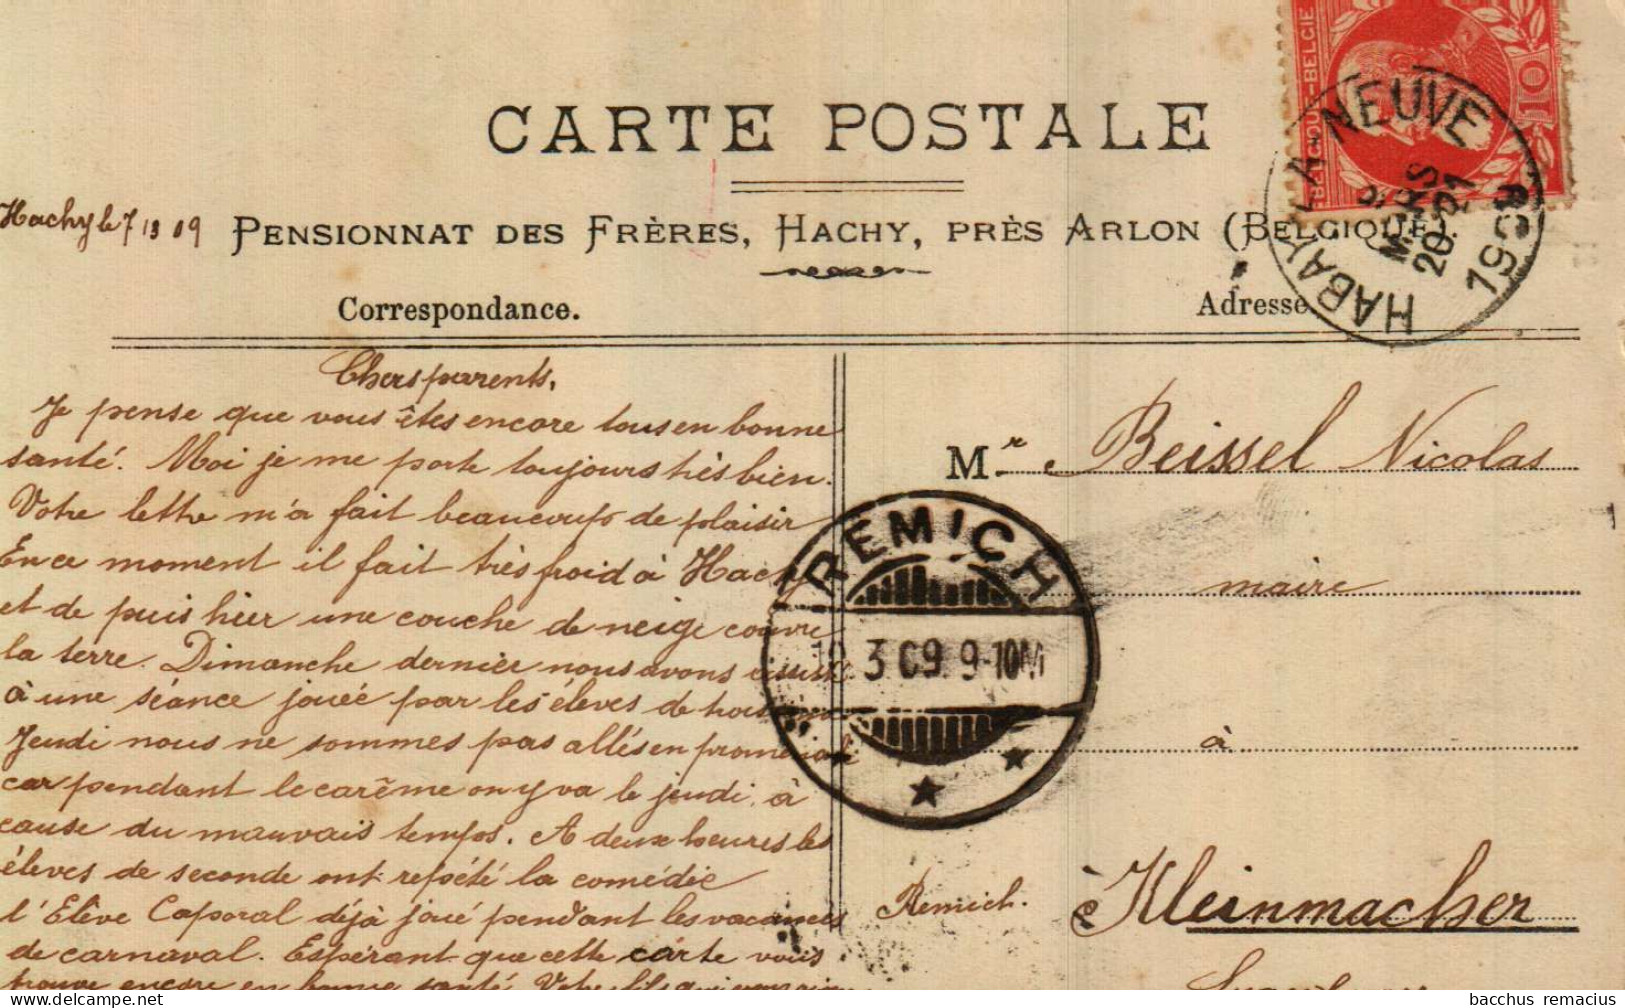 CARTE POSTALE
BELGIQUE-BELGIE
10
HABAY-LA-NEUVE
MARS
20-21
1909
Hachy le 7 13 09
PENSIONNAT DES FRÈRES, HACHY, PRÈS ARLON (BELGIQUE).
Correspondance.
Adresse
Chers parents,
Je pense que vous êtes encore tous en bonne
santé. Moi je me porte toujours très bien.
Votre lettre m'a fait beaucoup de plaisir
En ce moment il fait très froid à Hachy
et de puis hier une couche de neige couvre
la terre. Dimanche dernier nous avons
à une séance jouée par les élèves de
Jeudi nous ne sommes pas allés en promenade
car pendant le carême on y va le jeudi à
cause du mauvais temps. A deux heures les
élèves de seconde ont répété la comédie
l'Elève Caporal déjà joué pendant les vacances
de carnaval. Espérant que cette carte vous
trouve encore en bonne santé Votre fils qui vous
Mr Beissel Nicolas
maire
à
REMICH
3 09. 9-10M
Remich.
à Kleinmacher
bacchus remacius